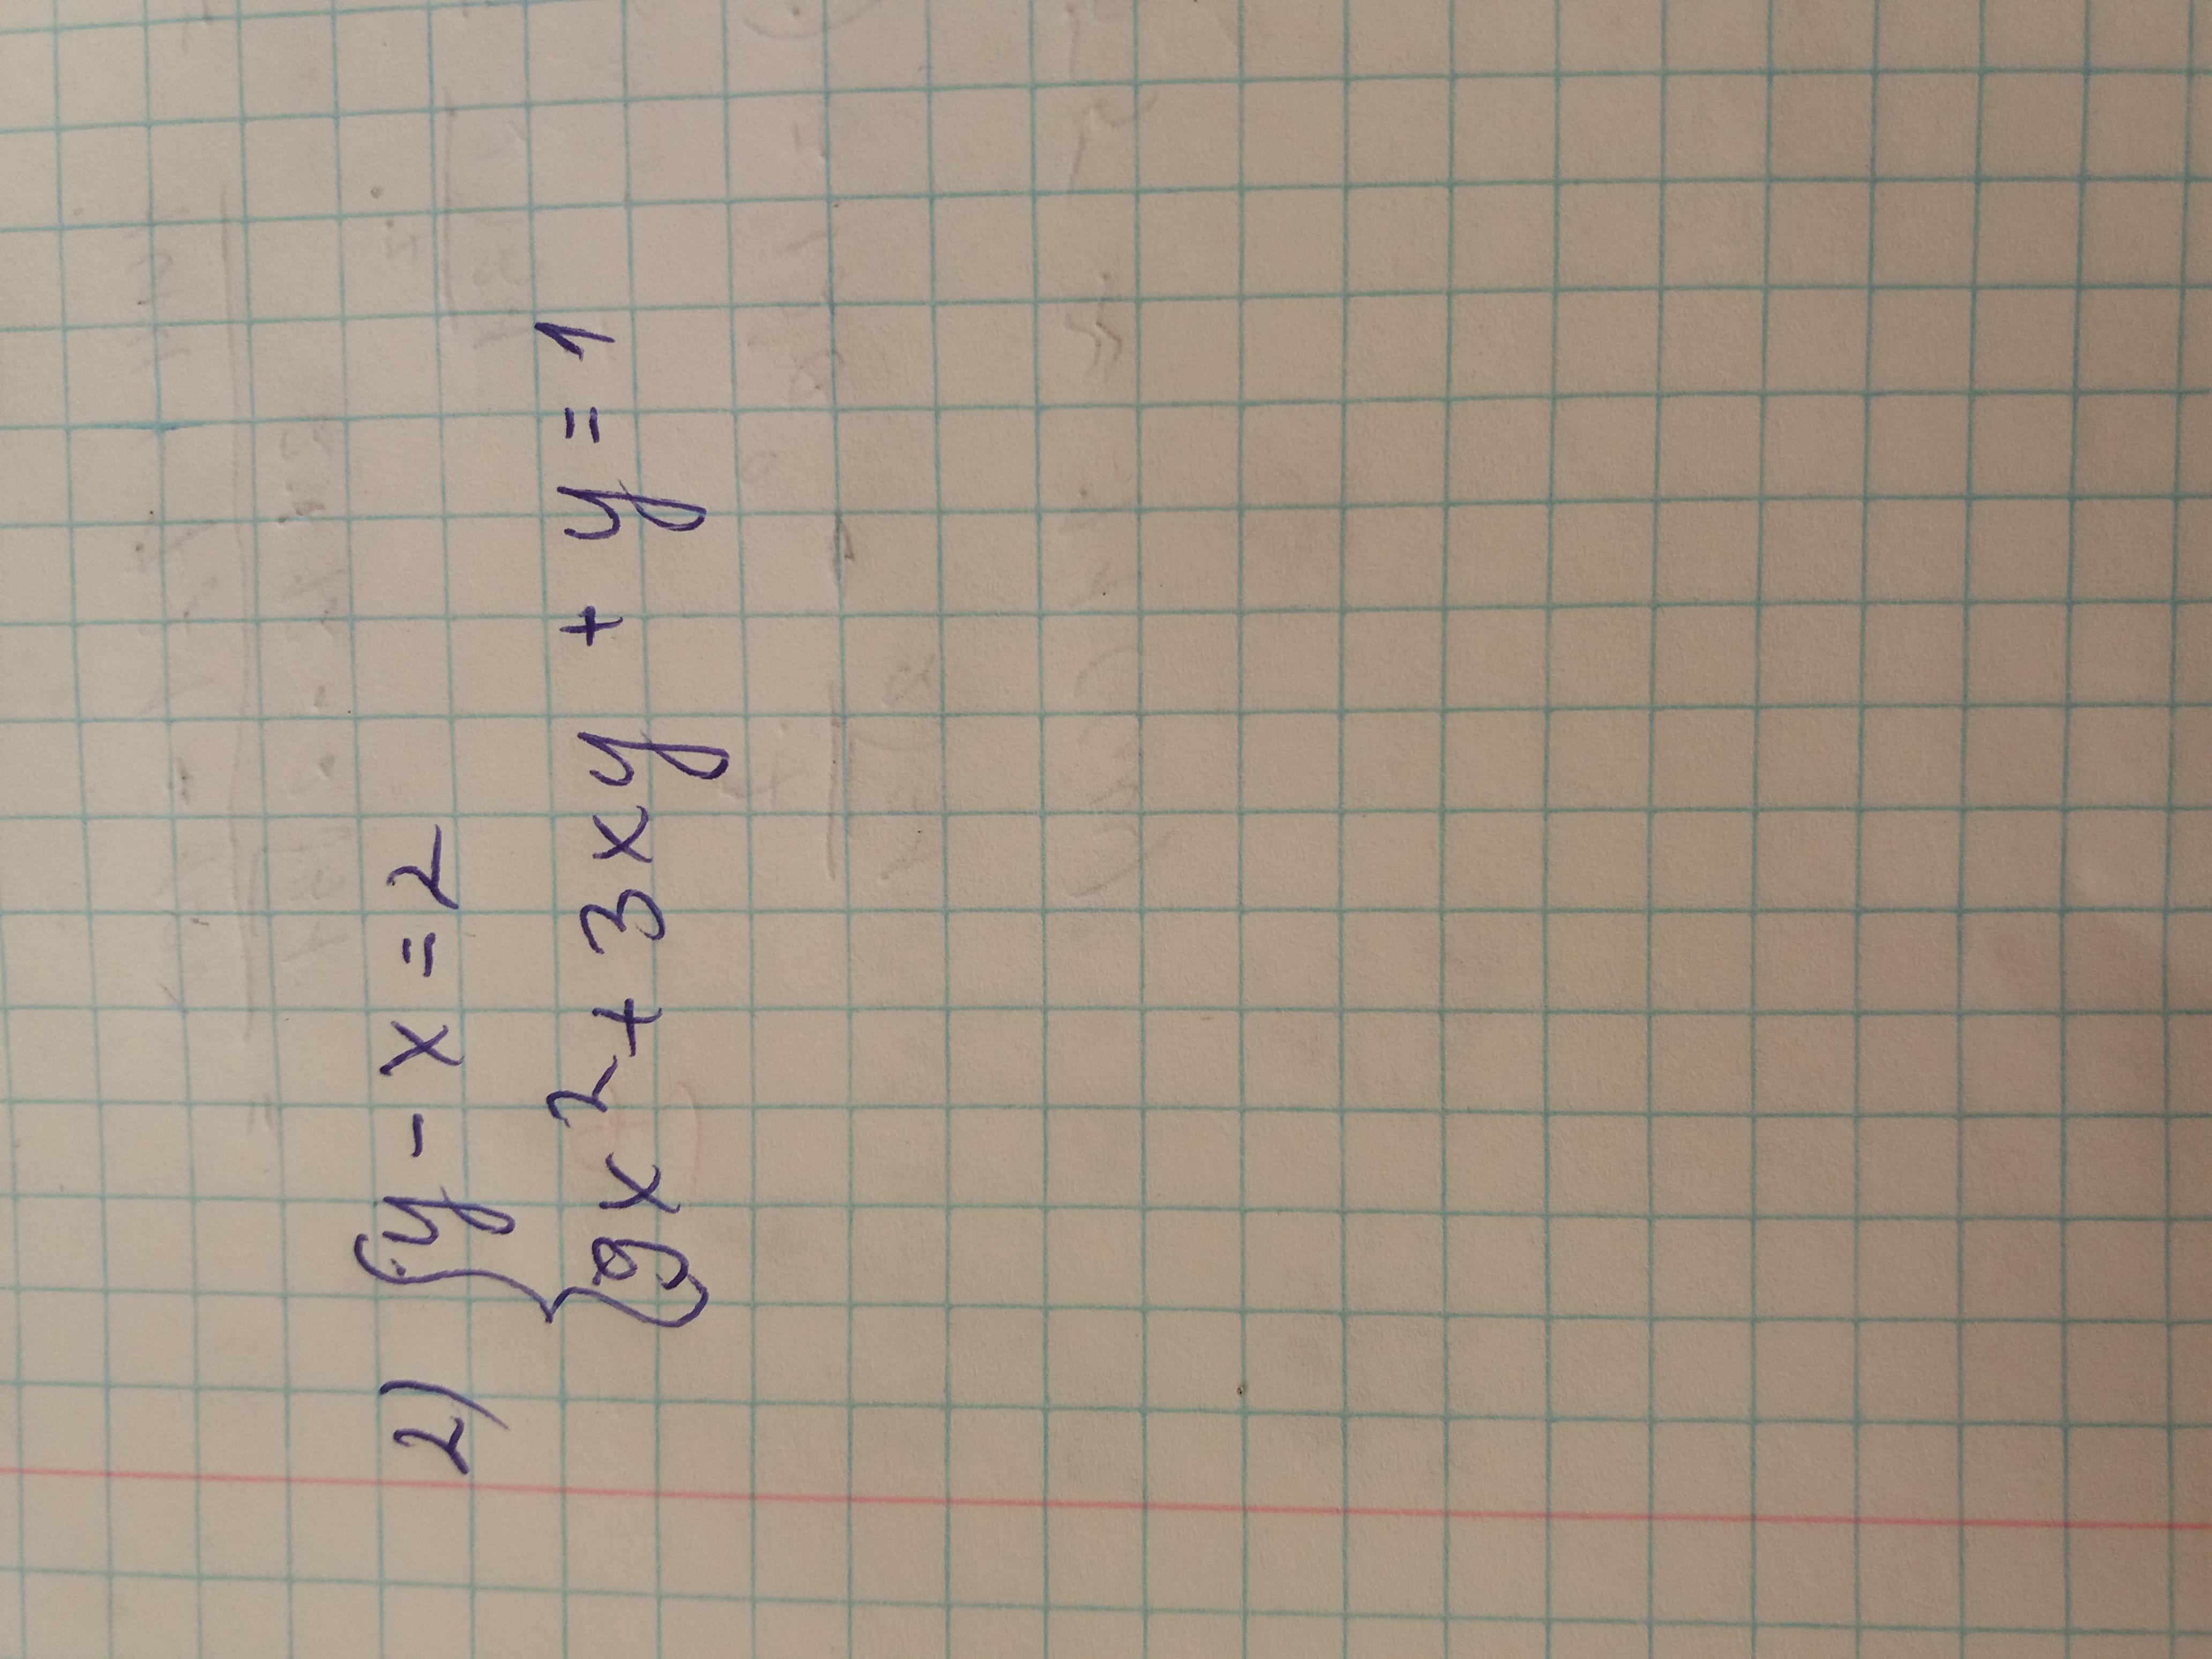 2) { y - x = 2
9x² + 3xy + y = 1